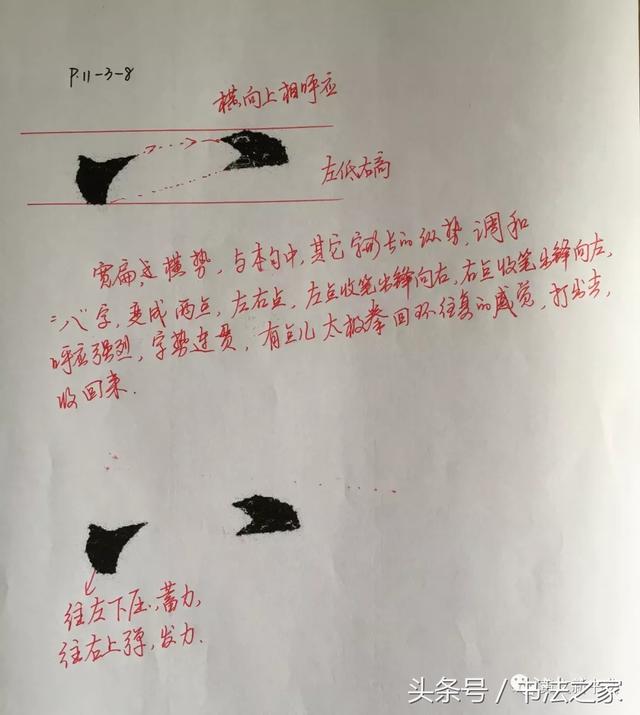 P.11-3-8
横向上相呼应
左低右高
宽扁之横势，与本句中，其它字形长的纵势，调和
"八"字，变成两点，左右点，左点收笔出锋向右，右点收笔出锋向左，
呼应强烈，字势连贯，有点儿太极拳回环往复的感觉，打出去，
收回来.
往左下压，蓄力，
往右上弹，发力.
头条号／书法之家